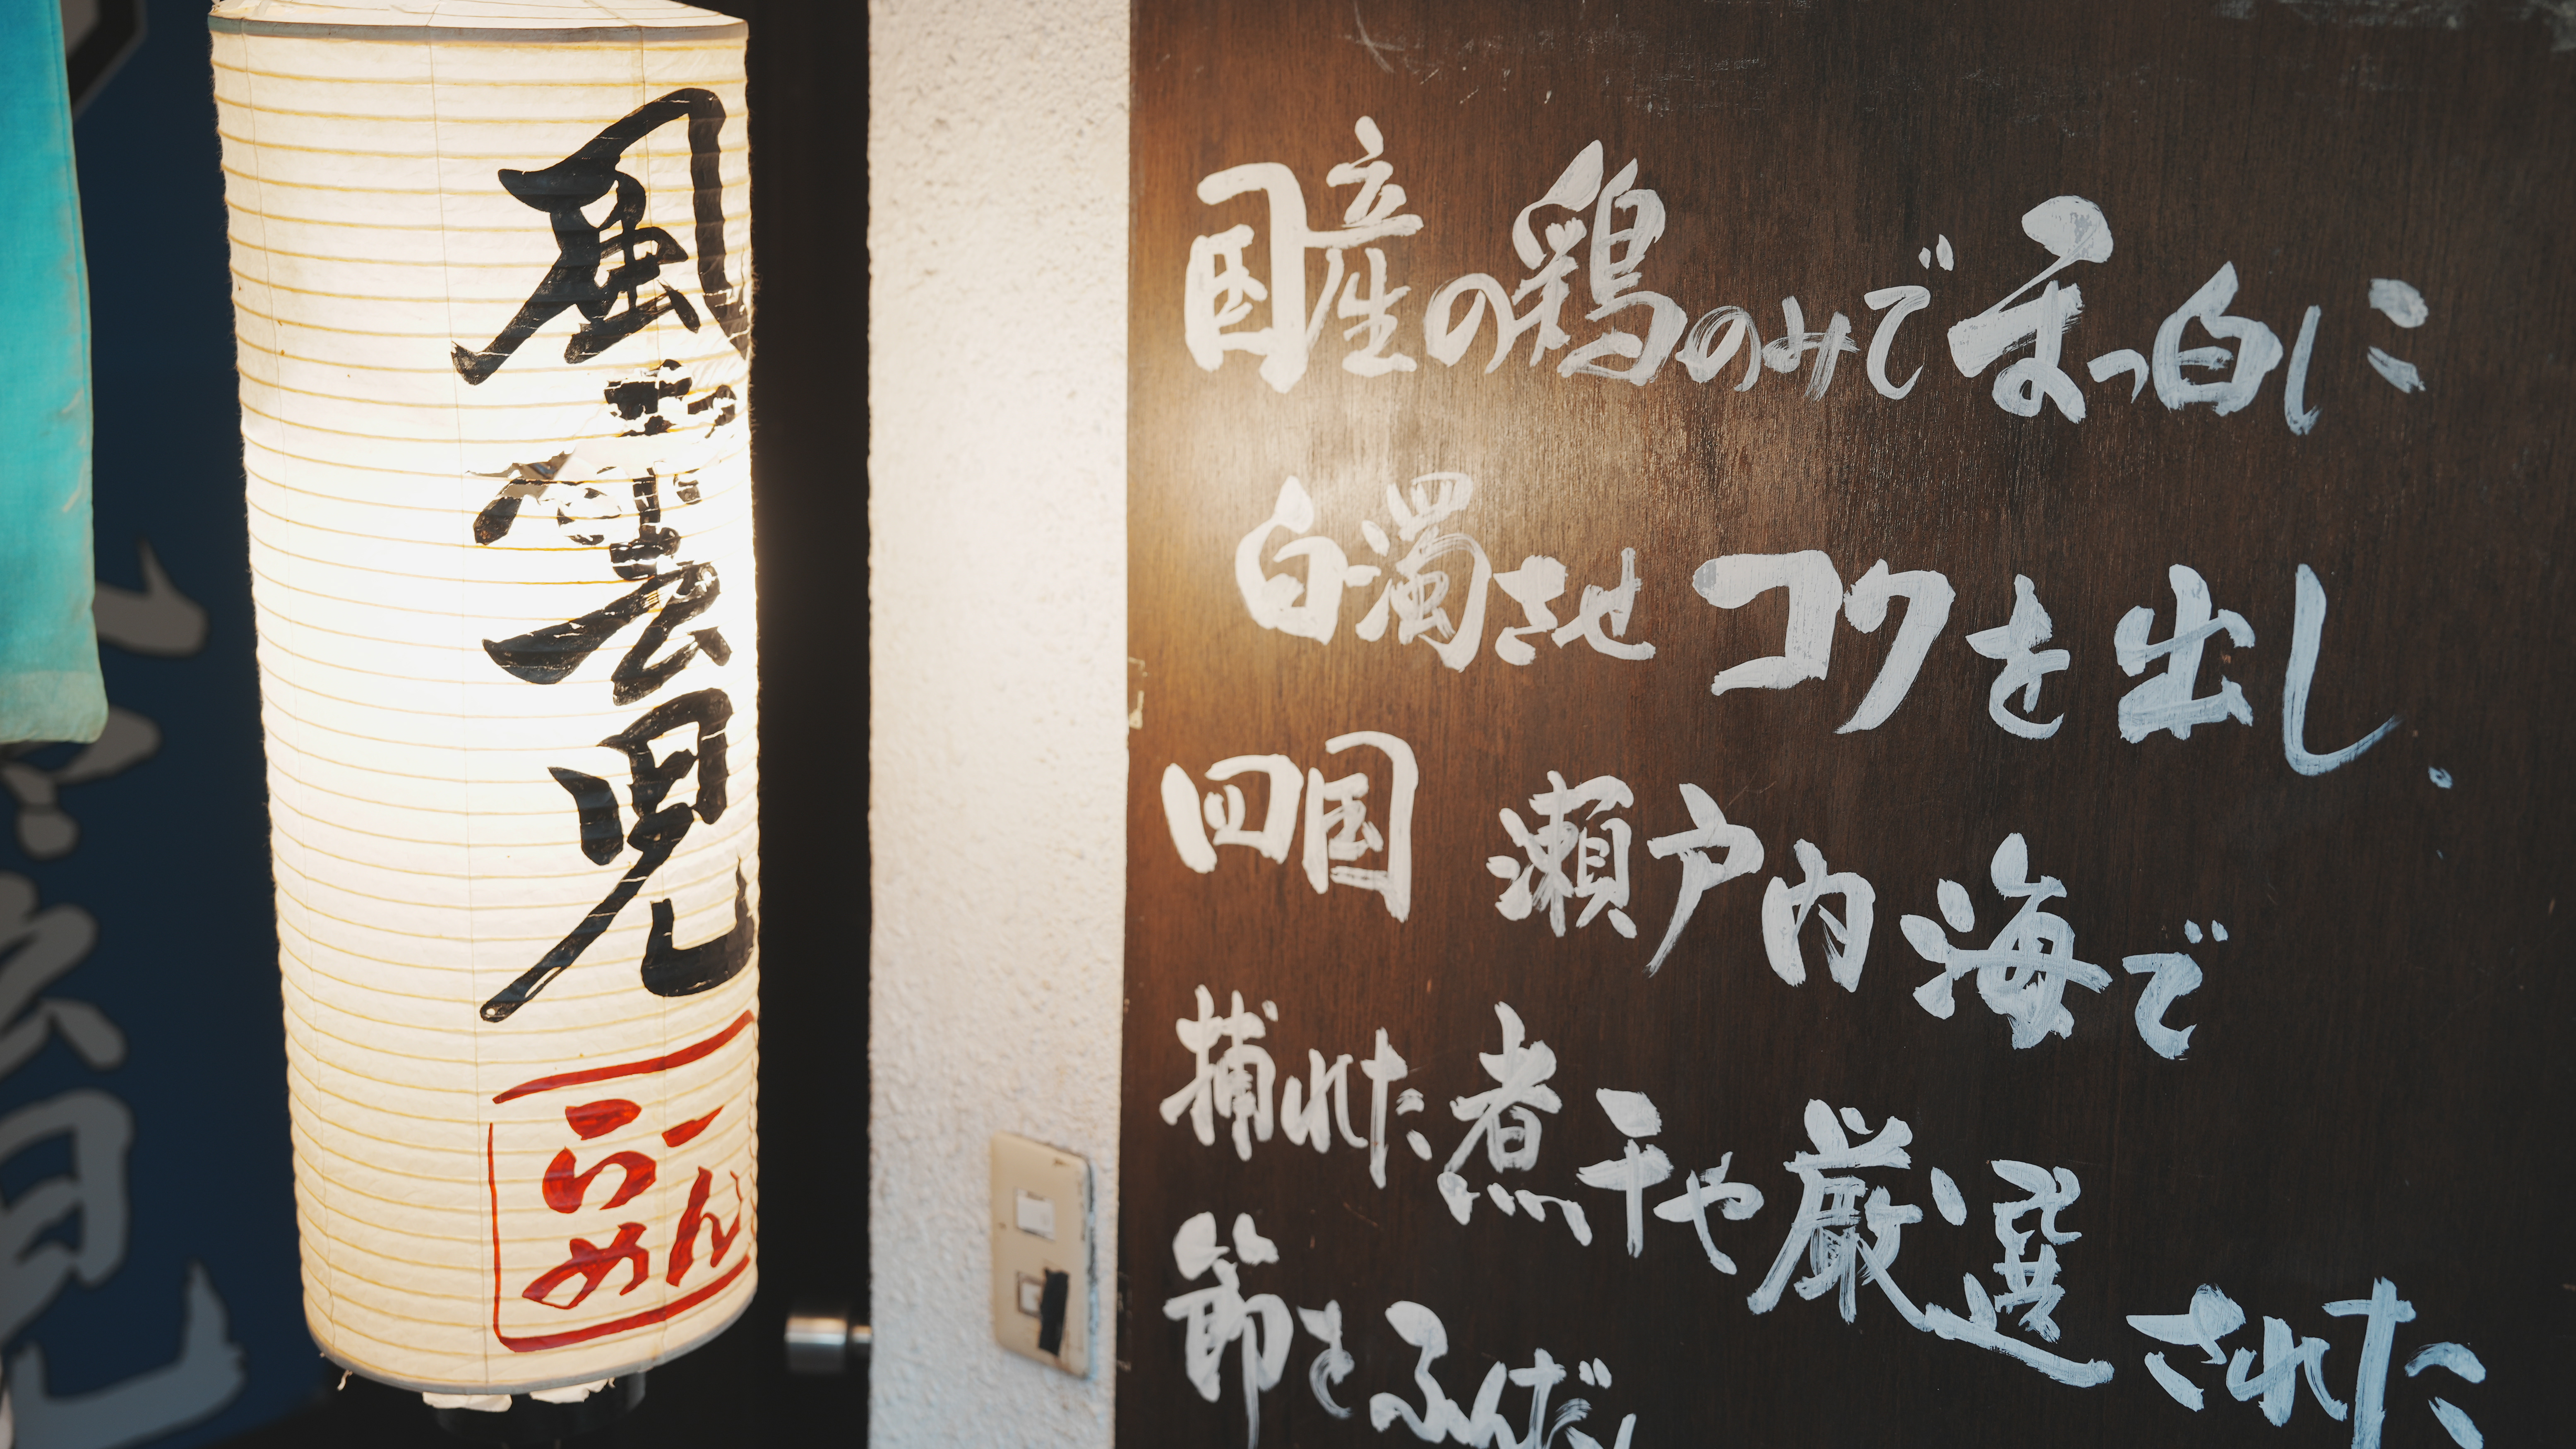 風雲児
らーめん
国産の鶏のみでまっ白に
白濁させコクを出し、
四国 瀬戸内海で
捕れた煮干や厳選された
節をふんだ